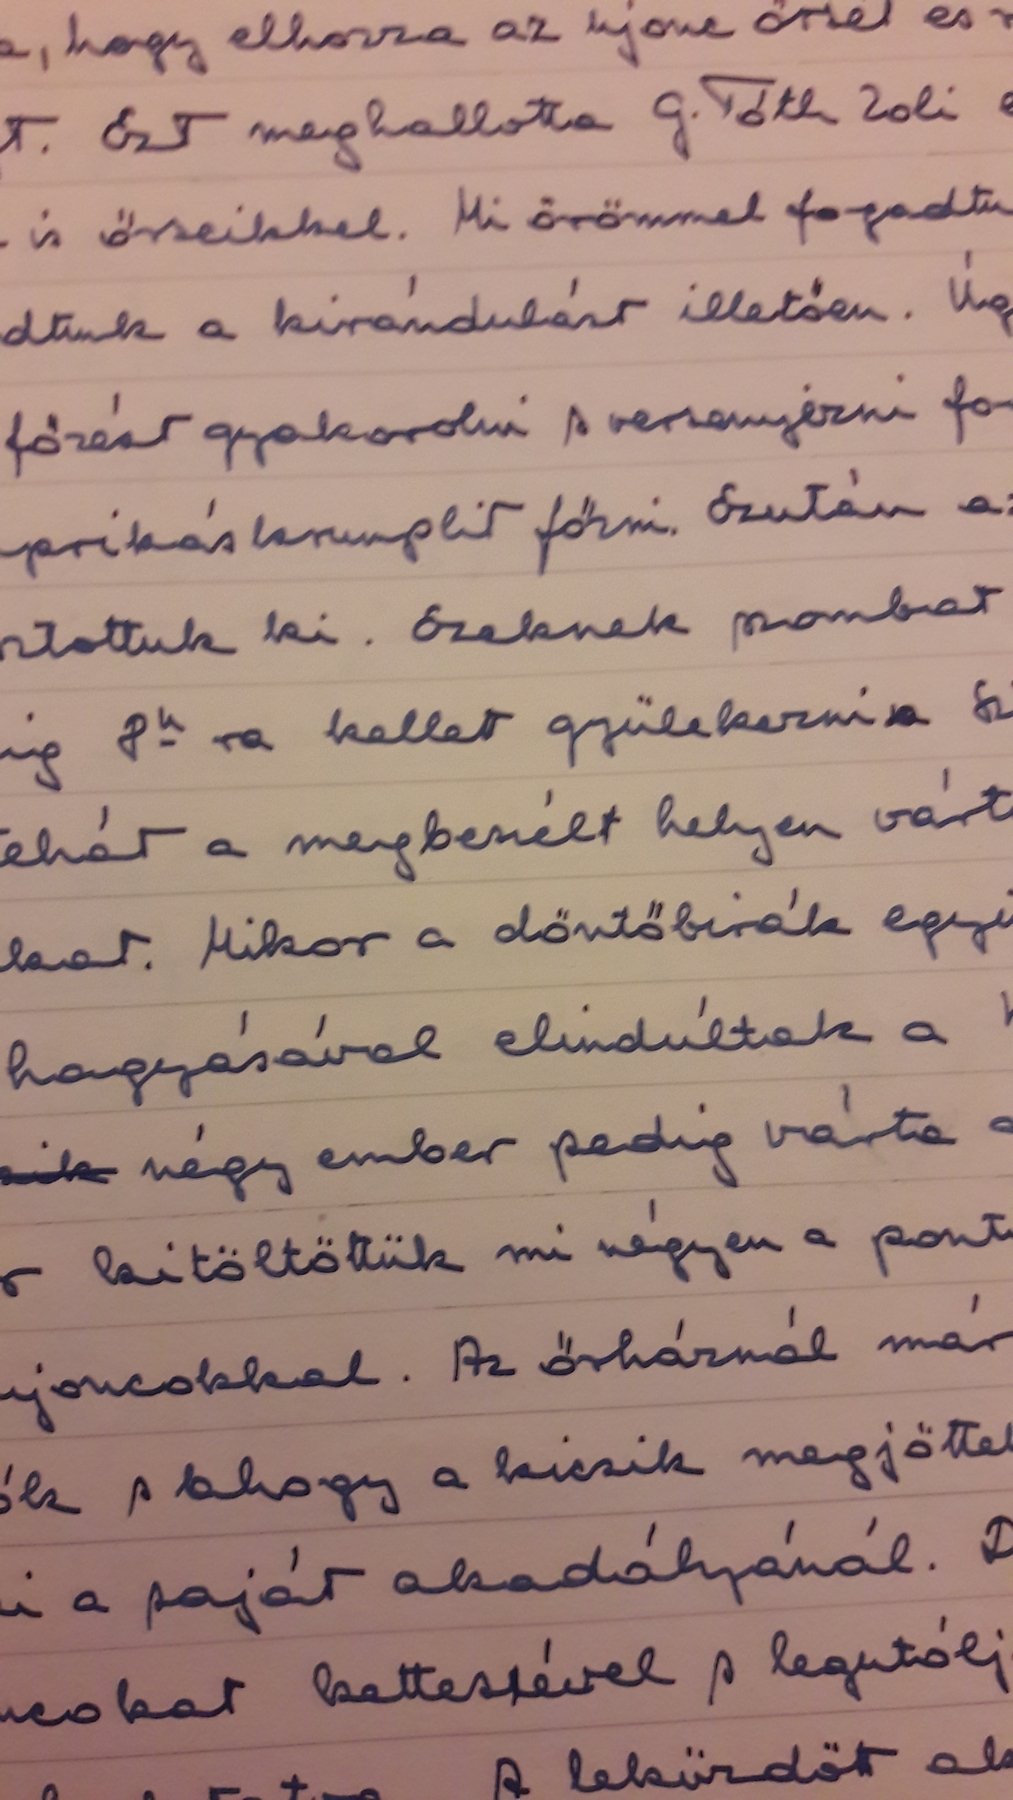 a, hogy elhozza az ujonc őrsét és
t. Ezt meghallotta G. Tóth Zoli
is őrseikkel. Mi örömmel fogadtu
dtunk a kirándulást illetően. Úg
főzést gyakorolni s versenyézni fo
prikáskrumplit főzni. Ezután az
sztottuk ki. Ezeknek szombat
ig 8h-ra kellet gyülekezni
tehát a megbeszélt helyen várt
kat. Mikor a döntőbirák együ
hagyásával elindúltak a
zik négy ember pedig várta a
r kitöltöttük mi négyen a pontu
ujoncokkal. Az őrháznál már
ók s ahogy a kicsik megjöttek
i a saját akadályánál. D
ncokat kettesével s legutólj
A leküzdött ak